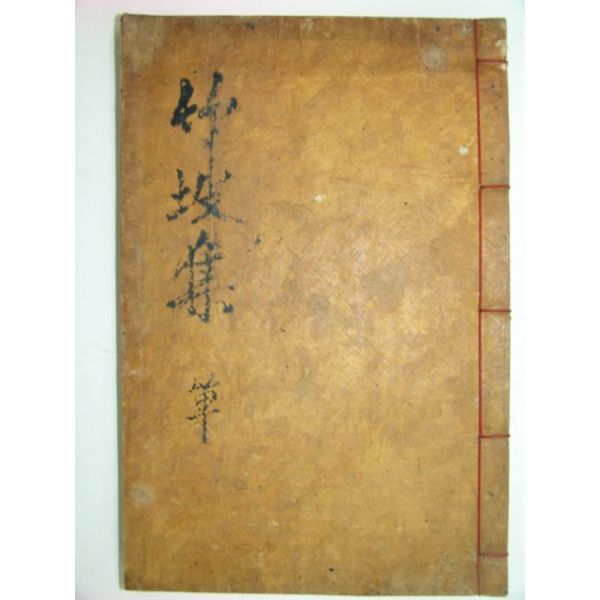 竹坡集 單